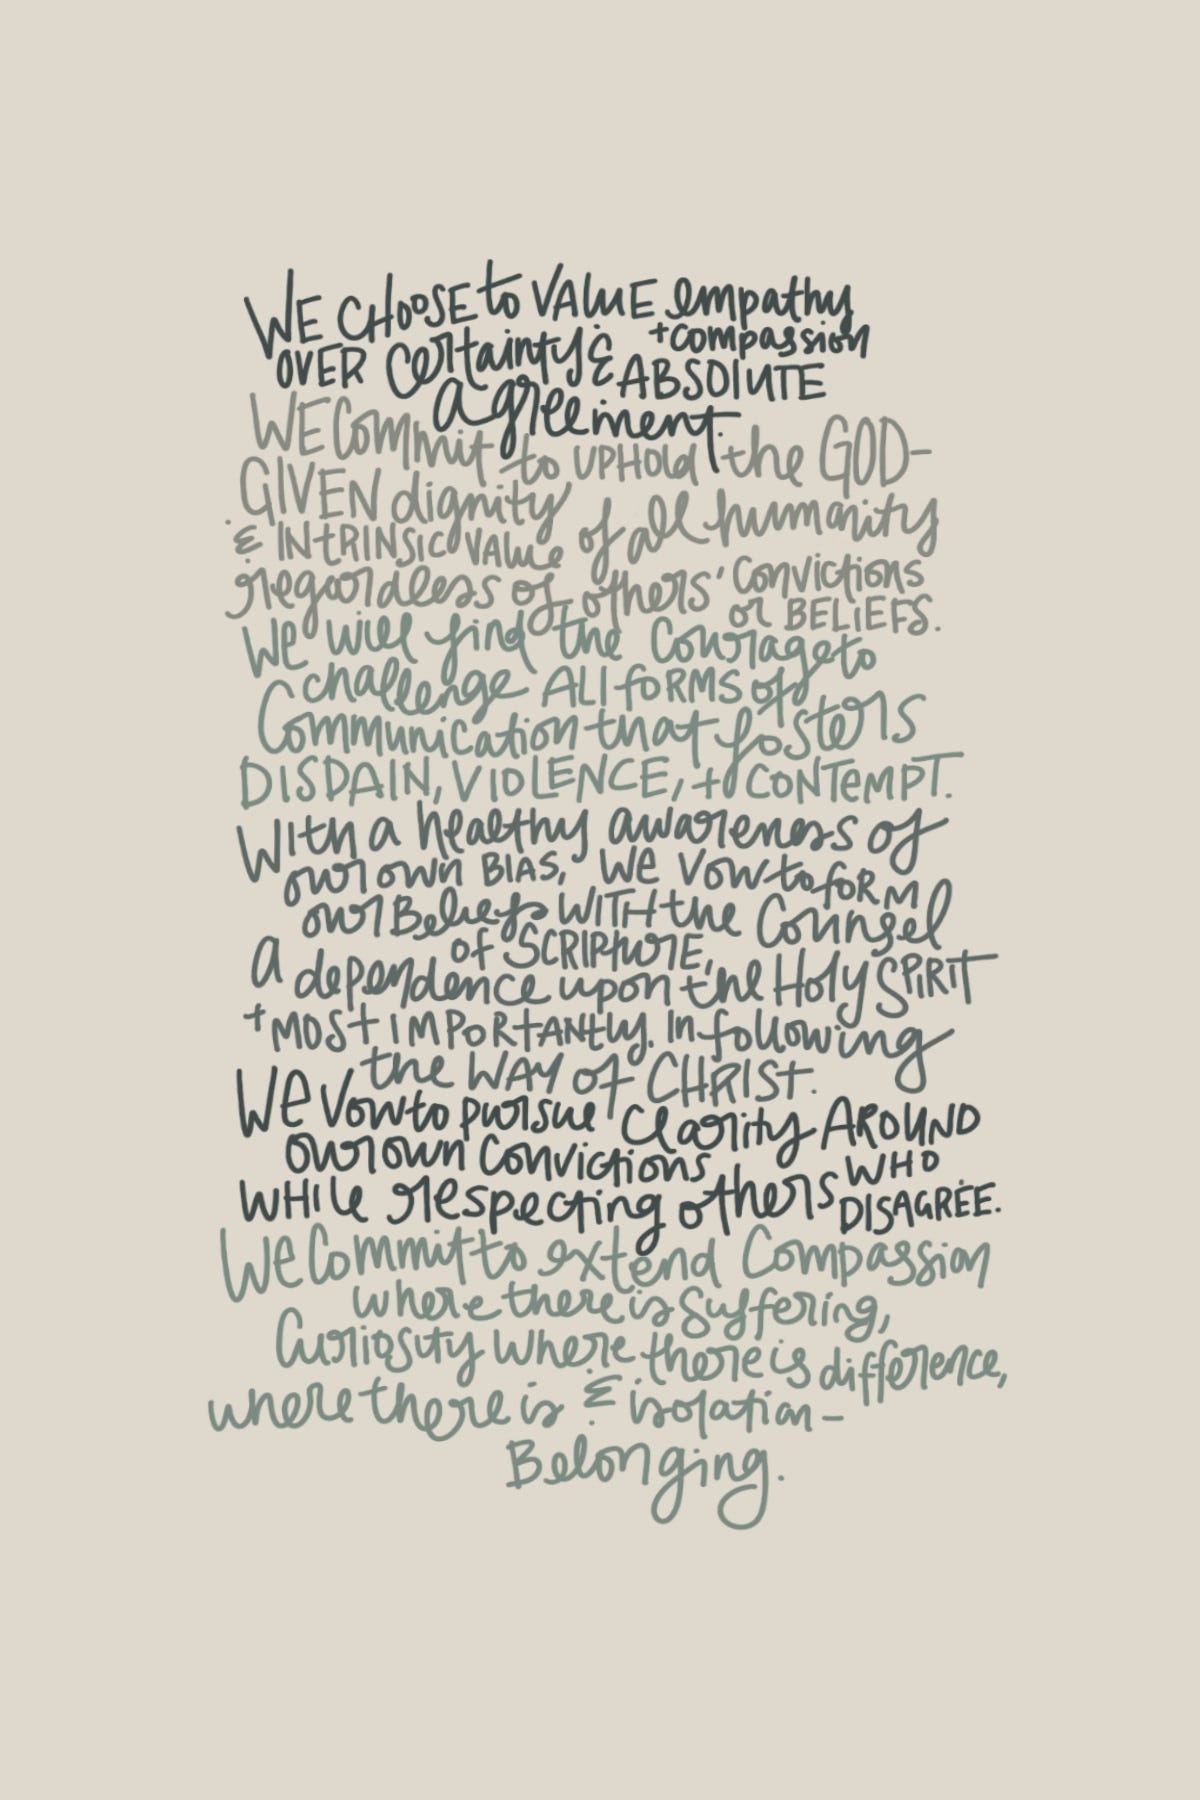 WE CHOOSE to VALUE empathy
+ compassion
OVER certainty & ABSOLUTE
agreement.
WE commit to UPHOLD the GOD-
GIVEN dignity
& INTRINSIC VALUE of all humanity
regardless of others' convictions
or BELIEFS.
We will find the courage to
challenge ALL forms of
Communication that fosters
DISDAIN, VIOLENCE, + CONTEMPT.
With a healthy awareness of
our own BIAS, we vow to form
our Beliefs WITH the Counsel
of SCRIPTURE,
a dependence upon the Holy SPIRIT
+ MOST IMPORTANTLY, in following
the WAY of CHRIST.
We Vow to pursue clarity AROUND
our own convictions
WHILE respecting others WHO
DISAGREE.
We Commit to extend Compassion
where there is suffering,
Curiosity where there is difference,
& where there is isolation –
Belonging.